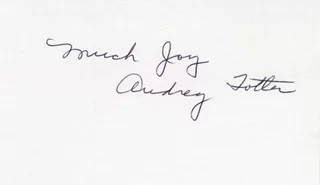 Much Joy
Audrey Totter